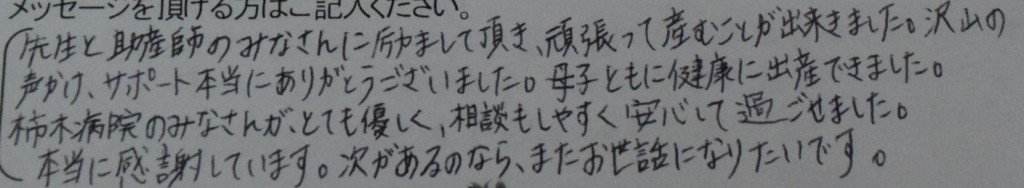 メッセージを頂ける方はご記入ください。
先生と助産師のみなさんに励まして頂き、頑張って産むことが出来ました。沢山の
声かけ、サポート本当にありがとうございました。母子ともに健康に出産できました。
柿木病院のみなさんが、とても優しく、相談もしやすく安心して過ごせました。
本当に感謝しています。次があるのなら、またお世話になりたいです。